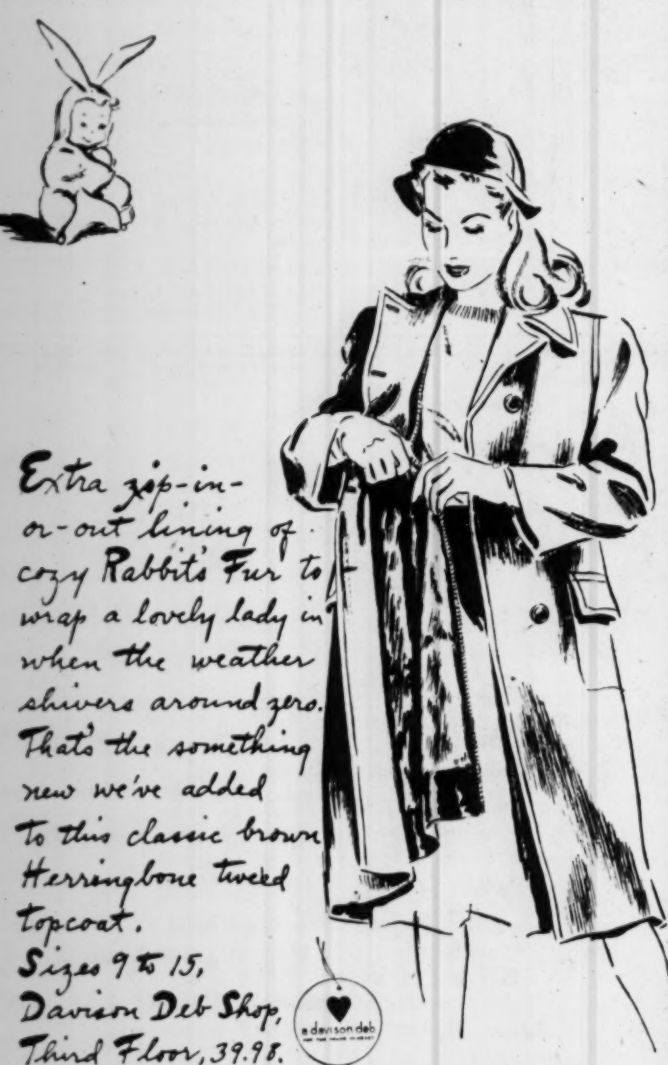 Extra zip-in-
or-out lining of
cozy Rabbit's Fur to
wrap a lovely lady in
when the weather
shivers around zero.
That's the something
new we've added
to this classic brown
Herringbone tweed
topcoat.
Sizes 9 to 15,
Davison Deb Shop,
Third Floor, 39.98.
a davison deb